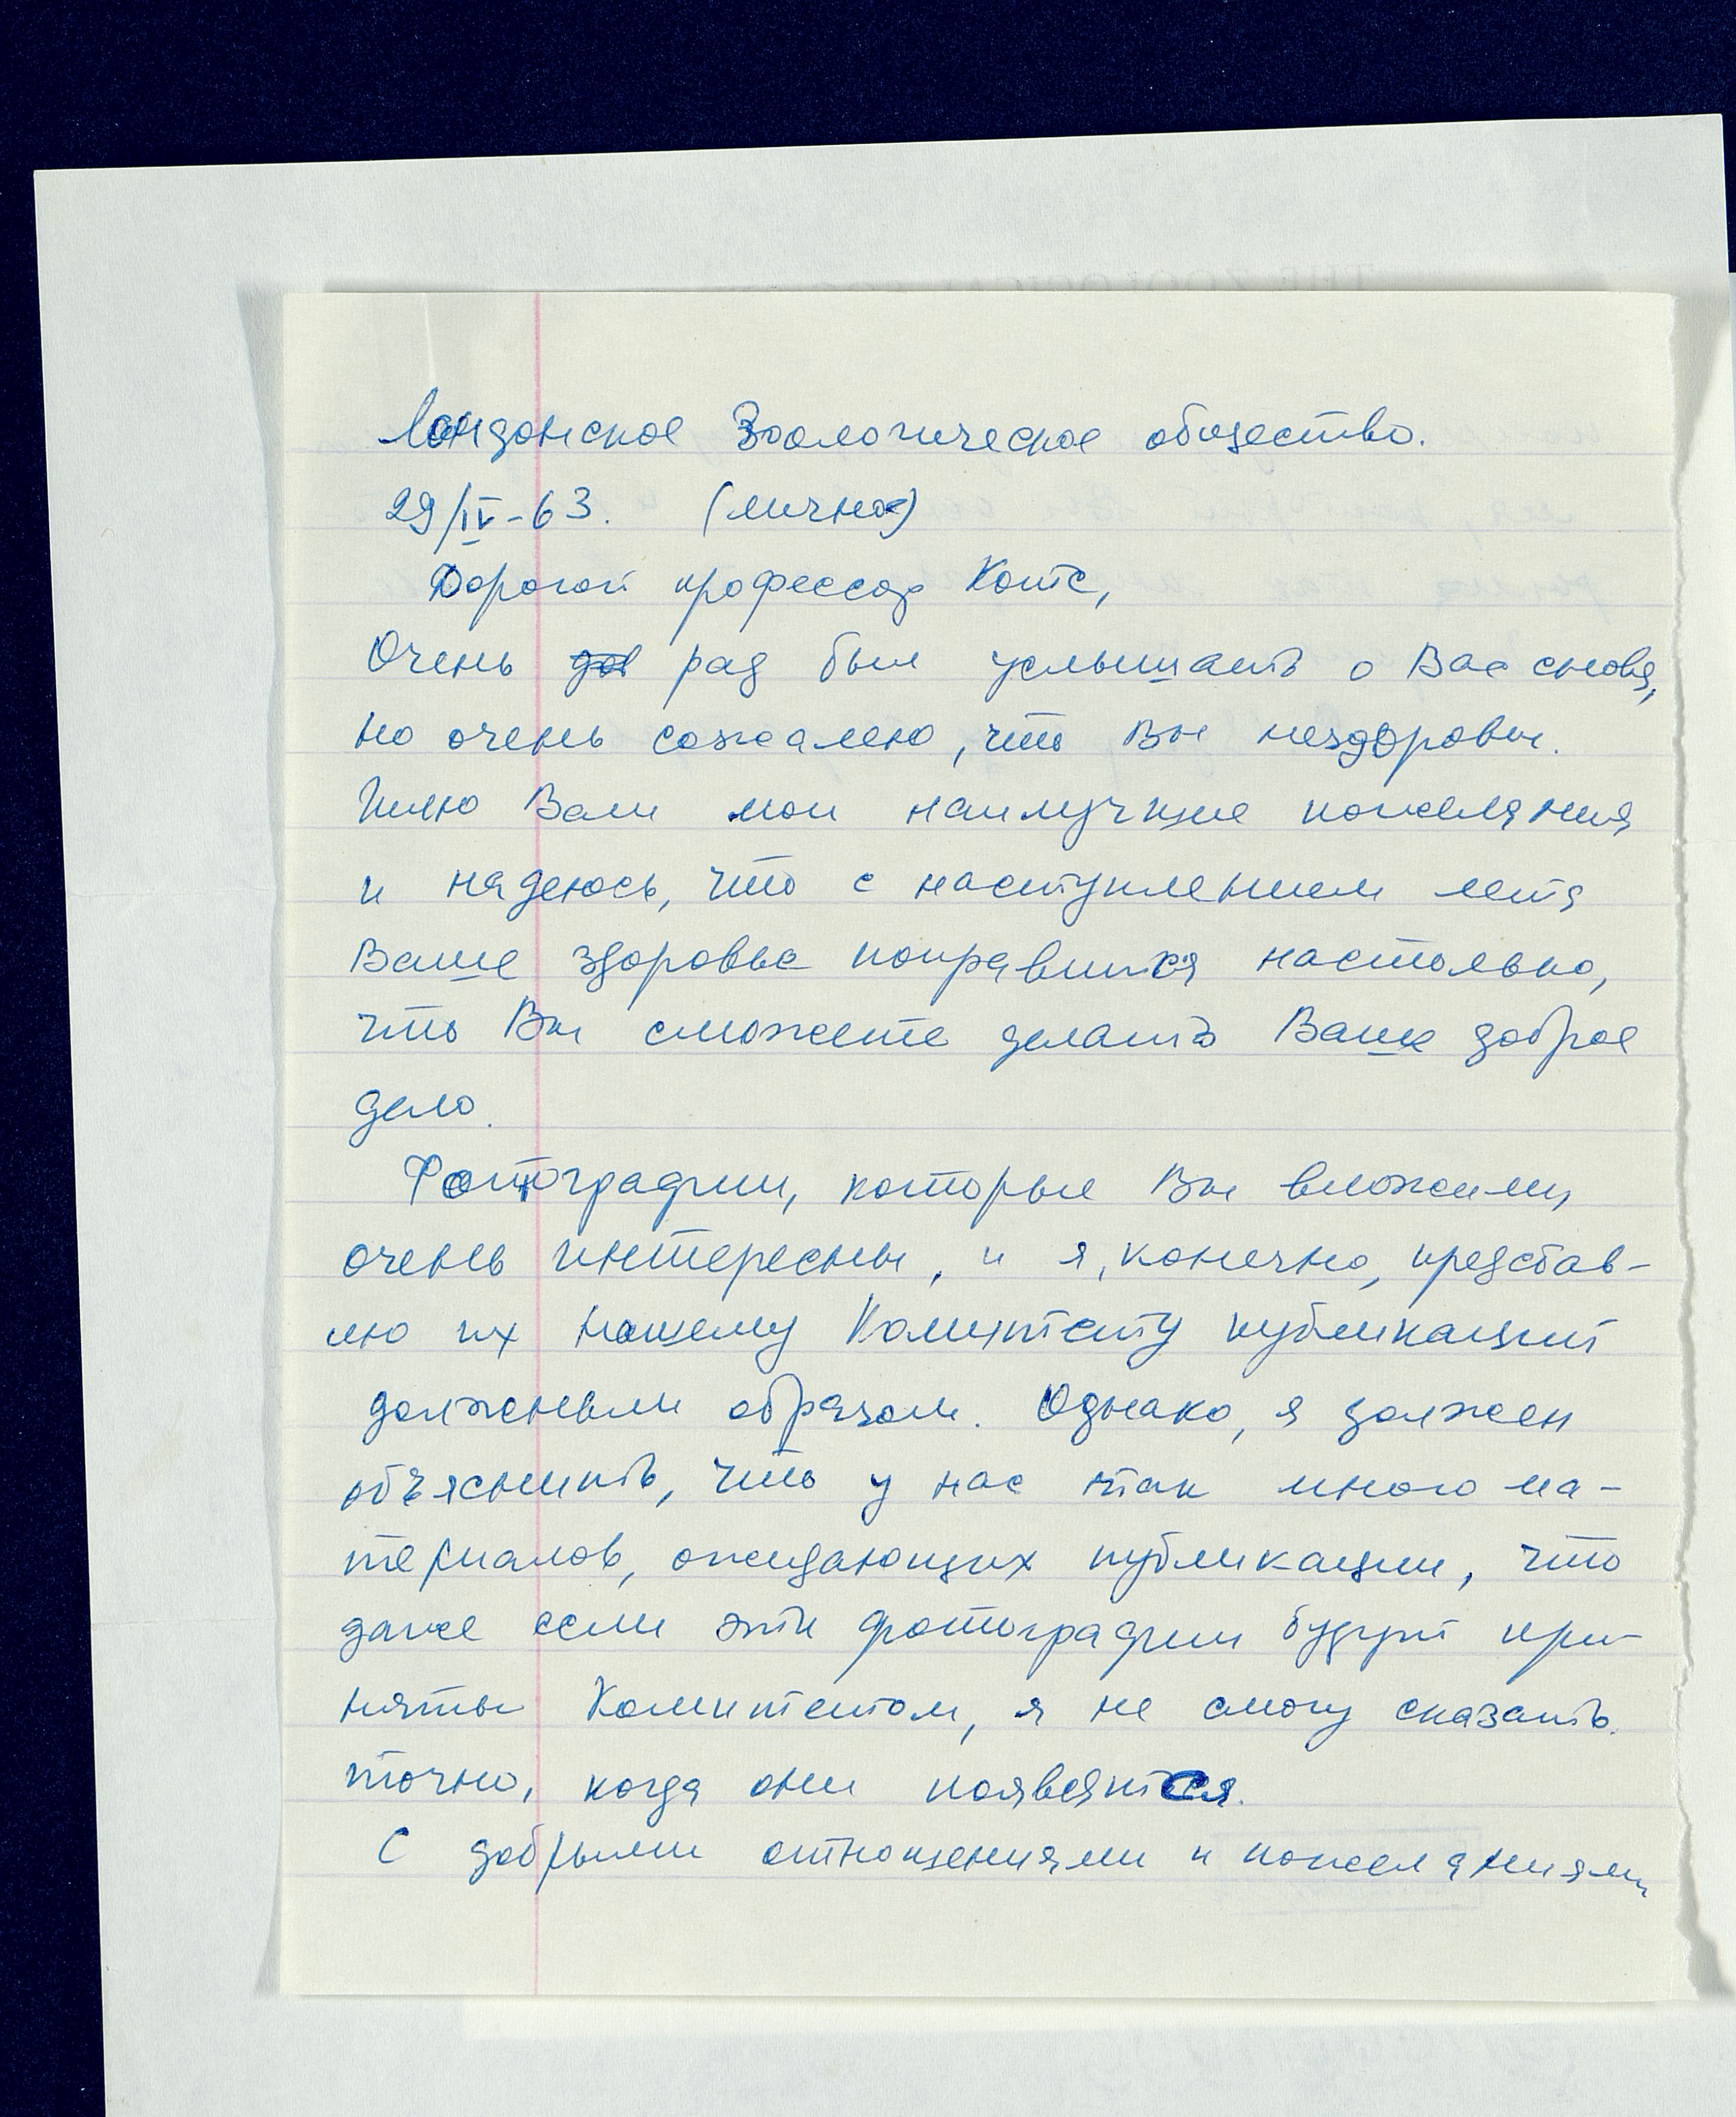 Лондонское Зоологическое общество.
29/IV-63. (лично)
Дорогой профессор Котс,
Очень рад был услышать о Вас снова,
но очень сожалею, что Вы нездоровы.
Шлю Вам мои наилучшие пожелания
и надеюсь, что с наступлением лета
Ваше здоровье поправится настолько,
что Вы сможете делать Ваше доброе
дело.
Фотографии, которые Вы вложили,
очень интересны, и я, конечно, представ-
лю их нашему Комитету публикаций
должным образом. Однако, я должен
объяснить, что у нас так много ма-
териалов, ожидающих публикации, что
даже если эти фотографии будут при-
няты Комитетом, я не смогу сказать
точно, когда они появятся.
С добрыми отношениями и пожеланиями